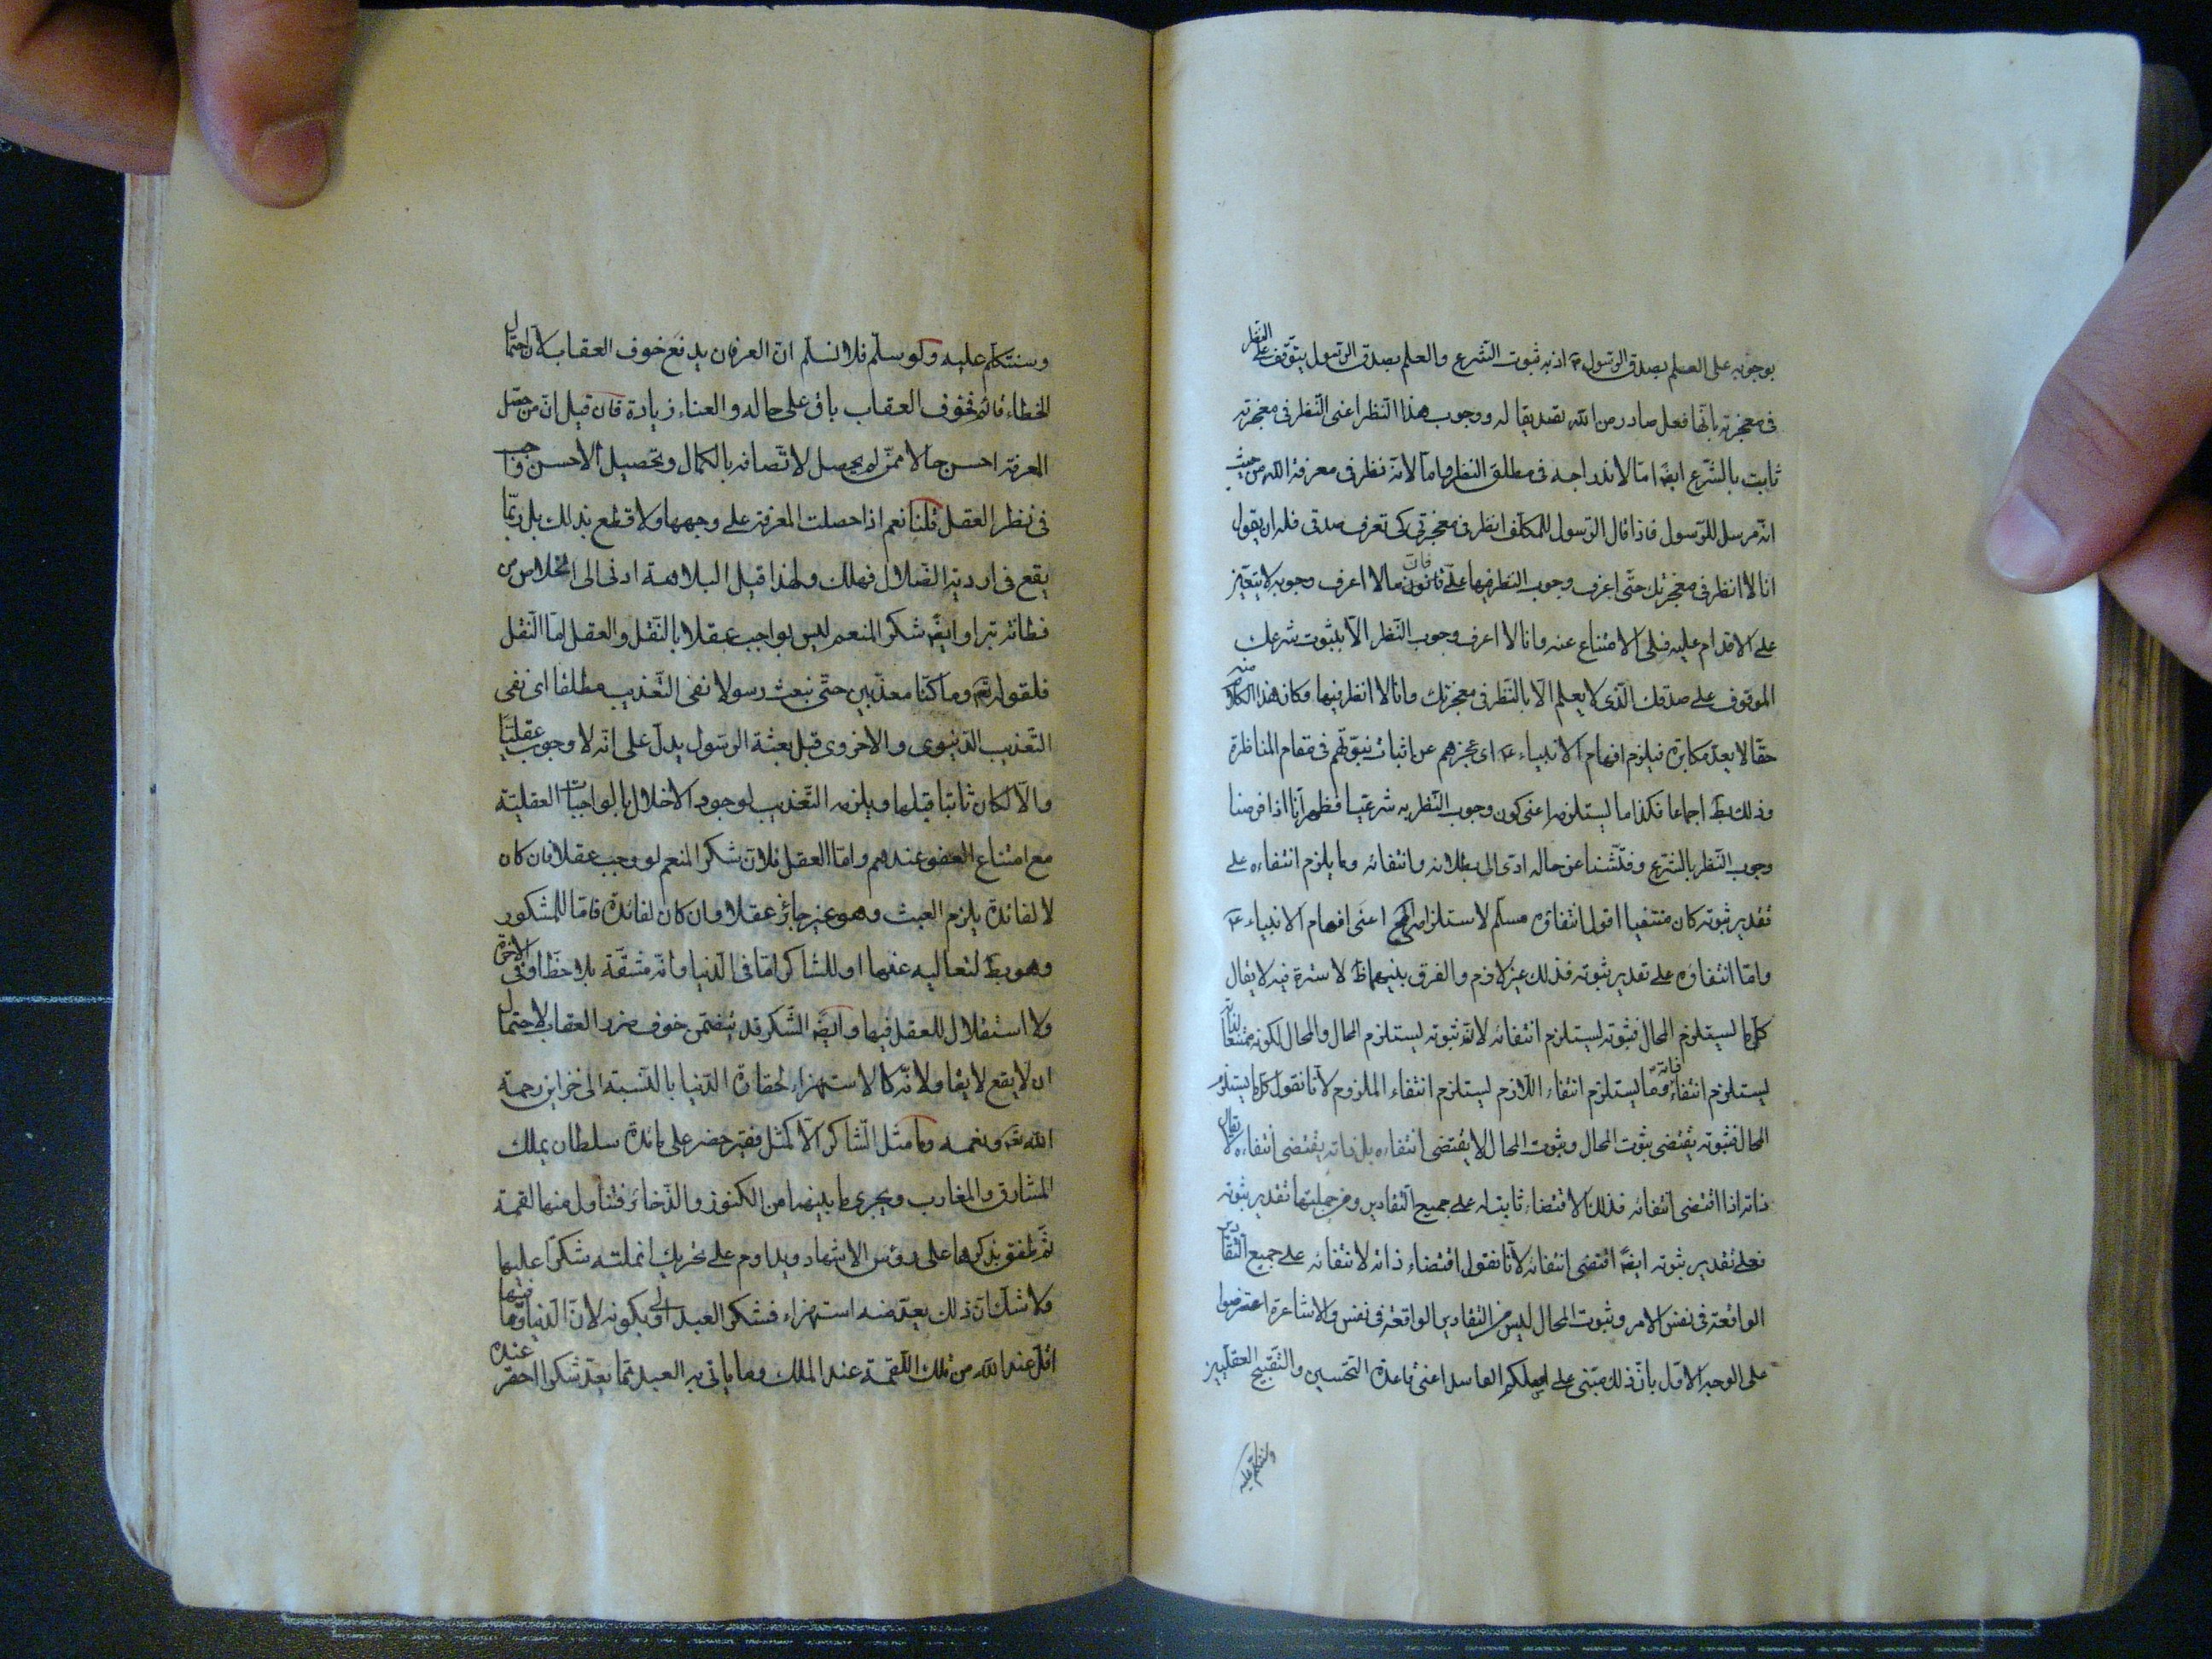 بوجوبه على العلم بصدق الرسول ع اذ به ثبوت الشرع والعلم بصدق الرسول يتوقف على النظر
فى معجزته بانها فعل صادر من الله تصديقا له ووجوب هذا النظر اعنى النظر فى معجزته
ثابت بالشرع ايضا اما لاندراجه فى مطلق النظر واما لانه نظر فى معرفة الله من حيث
انه مرسل للرسول فاذا قال الرسول للمكلف انظر فى معجزتى كى تعرف صدقى فله ان يقول
انا لا انظر فى معجزتك حتى اعرف وجوب النظر فيها على فان ما لا اعرف وجوبه لا يتعين
على الاقدام عليه فلى الامتناع عنه وانا لا اعرف وجوب النظر الا بثبوت شرعك
الموقوف على صدقك الذى لا يعلم الا بالنظر فى معجزتك وانا لا انظر فيها وكان هذا الكلام منه
حقا لا يعد مكابرة فيلزم افهام الانبياء ع اى عجزهم عن اثبات نبوتهم فى مقام المناظرة
وذلك بط اجماعا فكذا ما يستلزمه اعنى كون وجوب النظر به شرعيا فظهر انا اذا فرضنا
وجوب النظر بالشرع وفتشنا عن حاله ادى الى بطلانه وانتفائه وما يلزم انتفاءه على
تقدير ثبوته كان منتفيا اقول انتفاؤه مسلم لاستلزامه المح اعنى افهام الانبياء ع
واما انتفاؤه على تقدير ثبوته فذلك غير لازم والفرق بينهما ظ لا سترة فيه لا يقال
كل ما يستلزم المحال فثبوته يستلزم انتفائه لانه ثبوته يستلزم المحال والمحال لكونه ممتنعا لذاته
يستلزم انتفاء ذاته وما يستلزم انتفاء اللازم يستلزم انتفاء الملزوم لانا نقول كل ما يستلزم
المحال فثبوته يقتضى ثبوت المحال وثبوت المحال لا يقتضى انتفاءه بل ذاته يقتضى انتفاءه لا يقال
ذاته اذا اقتضى انتفائه فذلك الاقتضاء ثابت له على جميع التقادير ومن جملتها تقدير ثبوته
فعلى تقدير ثبوته ايضا اقتضى انتفائه لانا نقول اقتضاء ذاته لانتفائه على جميع التقادير
الواقعة فى نفس الامر وثبوت المحال ليس من التقادير الواقعة فى نفس والاشاعرة اعترضوا
على الوجه الاول بان ذلك مبتنى على اصلكم الفاسد اعنى قاعدة التحسين والتقبيح العقليين
وسنتكلم عليه
وسنتكلم عليه ولو سلم فلا نسلم ان العرفان يدفع خوف العقاب لان احتمال
الخطاء قائم فخوف العقاب باق على حاله والعناء زيادة فان قيل ان من حصل
المعرفة احسن حالا ممن لم يحصل لاتصافه بالكمال وتحصيل الاحسن واجب
فى نظر العقل قلنا نعم اذا حصلت المعرفة على وجهها ولا قطع بذلك بل ربما
يقع فى اردية الضلال فهلك ولهذا قيل البلاهة ادنى الى الخلاص من
فطانة بتراء وايضا شكر المنعم ليس بواجب عقلا بالنقل والعقل اما النقل
فلقوله تع وما كنا معذبين حتى نبعث رسولا نفى التعذيب مطلقا اى نفى
التعذيب الدنيوى والاخروى قبل بعثة الرسول يدل على انه لا وجوب عقليا
والا لكان ثابتا قبلها ويلزمه التعذيب لوجود الاخلال بالواجبات العقلية
مع امتناع العفو عندهم واما العقل فلان شكر المنعم لو وجب عقلا فان كان
لا لفائدة يلزم العبث وهو غير جائز عقلا وان كان لفائدة فاما للمشكور
وهو بط لتعاليه عنها او للشاكر اما فى الدنيا وانه مشقة بلا حظ او فى الاخرة
ولا استقلال للعقل فيها وايضا الشكر قد يتضمن خوف ضرر العقاب لاحتمال
ان لا يقع لايقا ولانه كالاستهزاء لحقارة الدنيا بالنسبة الى خزاين رحمة
الله تع ونعمه وما مثل الشاكر الا كمثل فقير حضر على مائدة سلطان يملك
المشارق والمغارب ويجرى ما بينهما من الكنوز والذخائر فتناول منها لقمة
ثم طفق يذكرها على رؤس الاشهاد ويداوم على تحريك انملته شكرا عليها
ولا شك ان ذلك يعد منه استهزاء فشكر العبد اولى بكونه لان الدنيا وما فيها
اقل عند الله من تلك اللقمة عند الملك وما ياتى به العبد مما يعد شكرا احقر عنده